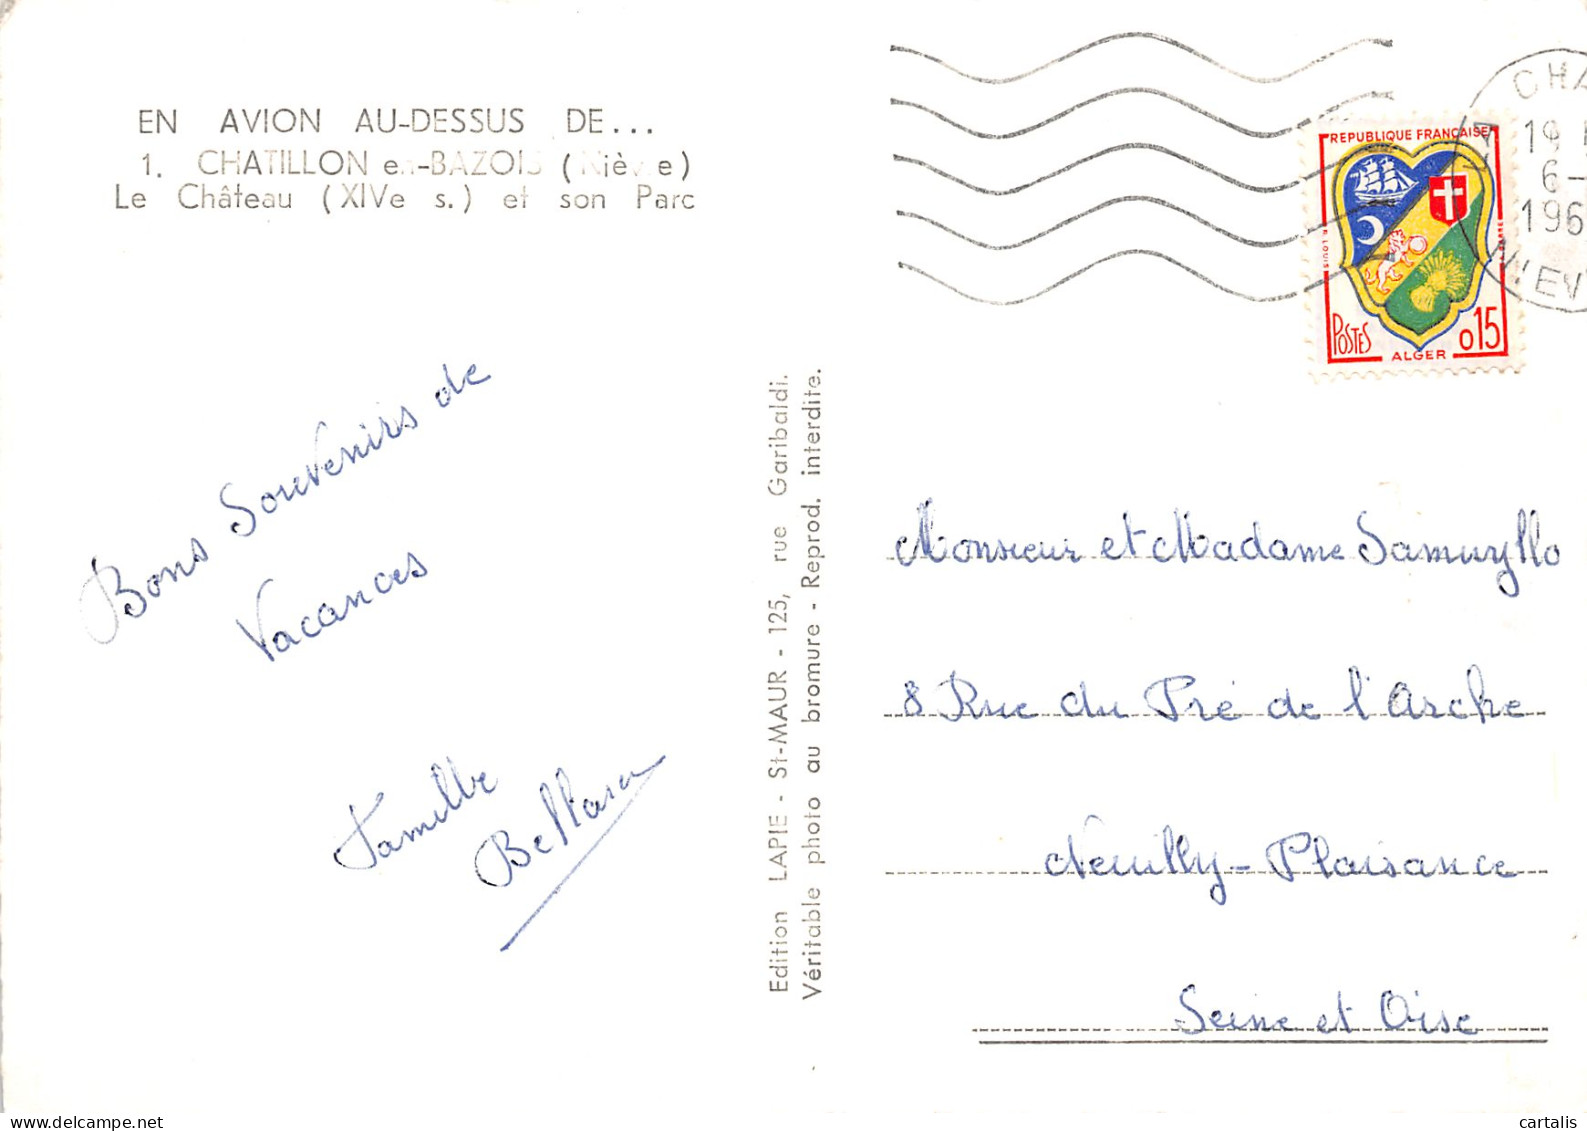 EN AVION AU-DESSUS DE...
1. CHATILLON en-BAZOIS (Nièvre)
Le Château (XIVe s.) et son Parc
Bons Souvenirs de
Vacances
Famille
Edition LAPIE - St-MAUR - 125, rue Garibaldi.
Véritable photo au bromure - Reprod. interdite.
CHA
19
6-
196
REPUBLIQUE FRANÇAISE
R. LOUIS
POSTES
0,15
ALGER
Monsieur et Madame Samuyllo
8 Rue du Pré de l'Arche
Neuilly-Plaisance
Seine et Oise
cartalis
www.delcampe.net